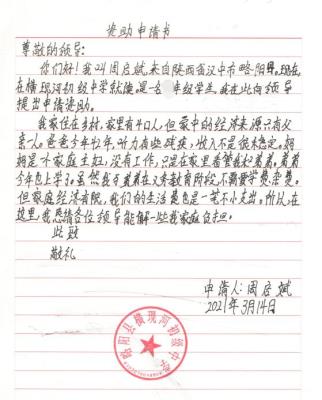 资助申请书
尊敬的领导:
你们好!我叫周启斌,来自陕西省汉中市略阳县。现在
在横现河初级中学就读,是一名 年级学生,我在此向领导
提出申请资助。
我家住在乡村,家里有4口人,但家中的经济来源只有父
亲一人。爸爸今年 ,听力有些残疾,收入不是很稳定。妈
妈是个家庭主妇,没有工作,只是在家里看管我和弟弟。弟弟
今年也上学了。虽然我 弟弟在义务教育阶段,不需要学费、杂费。
但家庭经济有限,我们的生活费也是一笔不小支出。所以,在
这里,我恳请各位领导能解一些我家庭负担。
此致
敬礼
申请人:周启斌
2021年3月14日
略阳县横现河初级中学